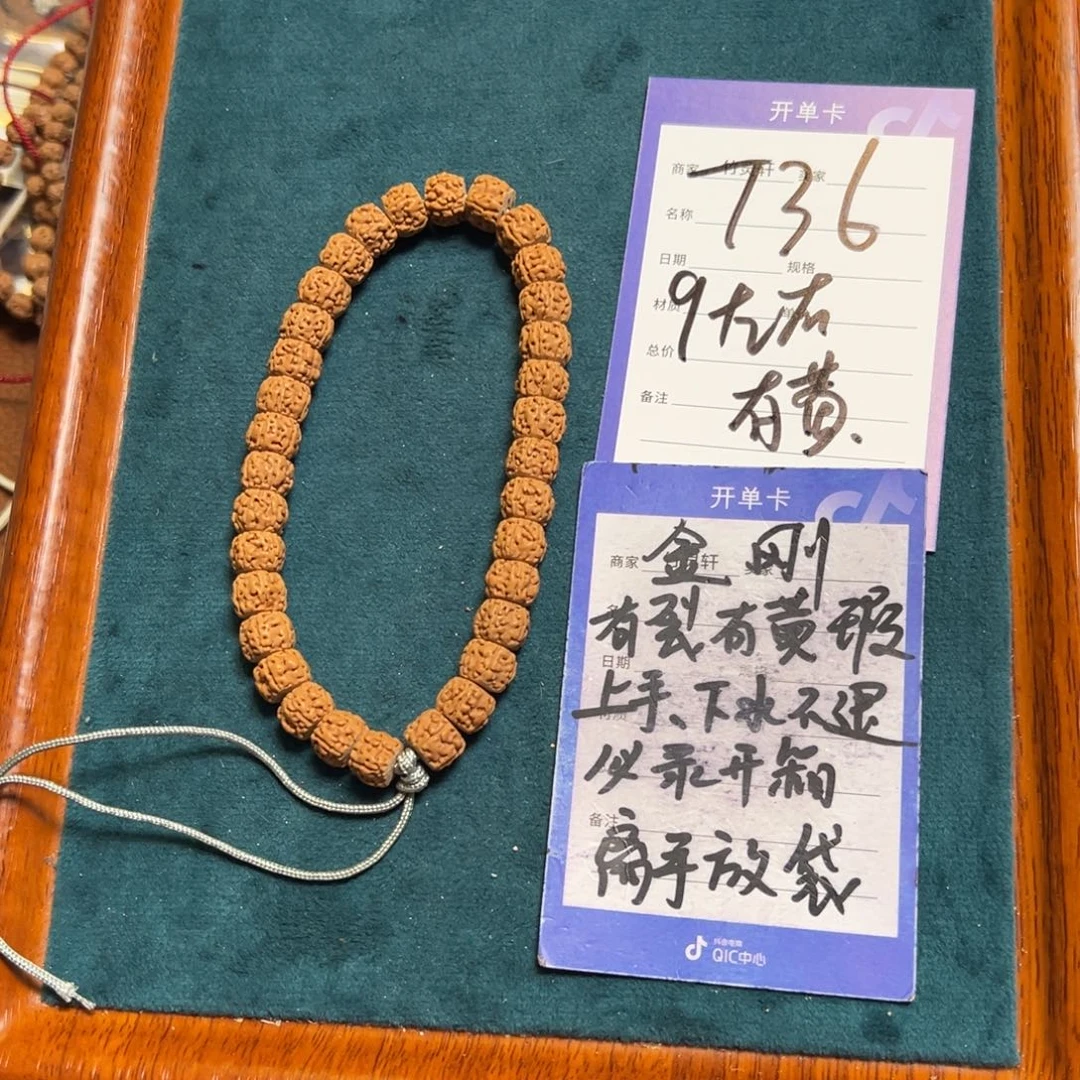 开单卡
商家 竹 轩 家
736
名称
日期 规格
材质
9左右
总价
备注
有黄.
开单卡
商家 轩
金刚
有裂有黄瑕
日期
上手、下水不退
必录开箱
备注
离手放袋
抖音电商
QIC中心